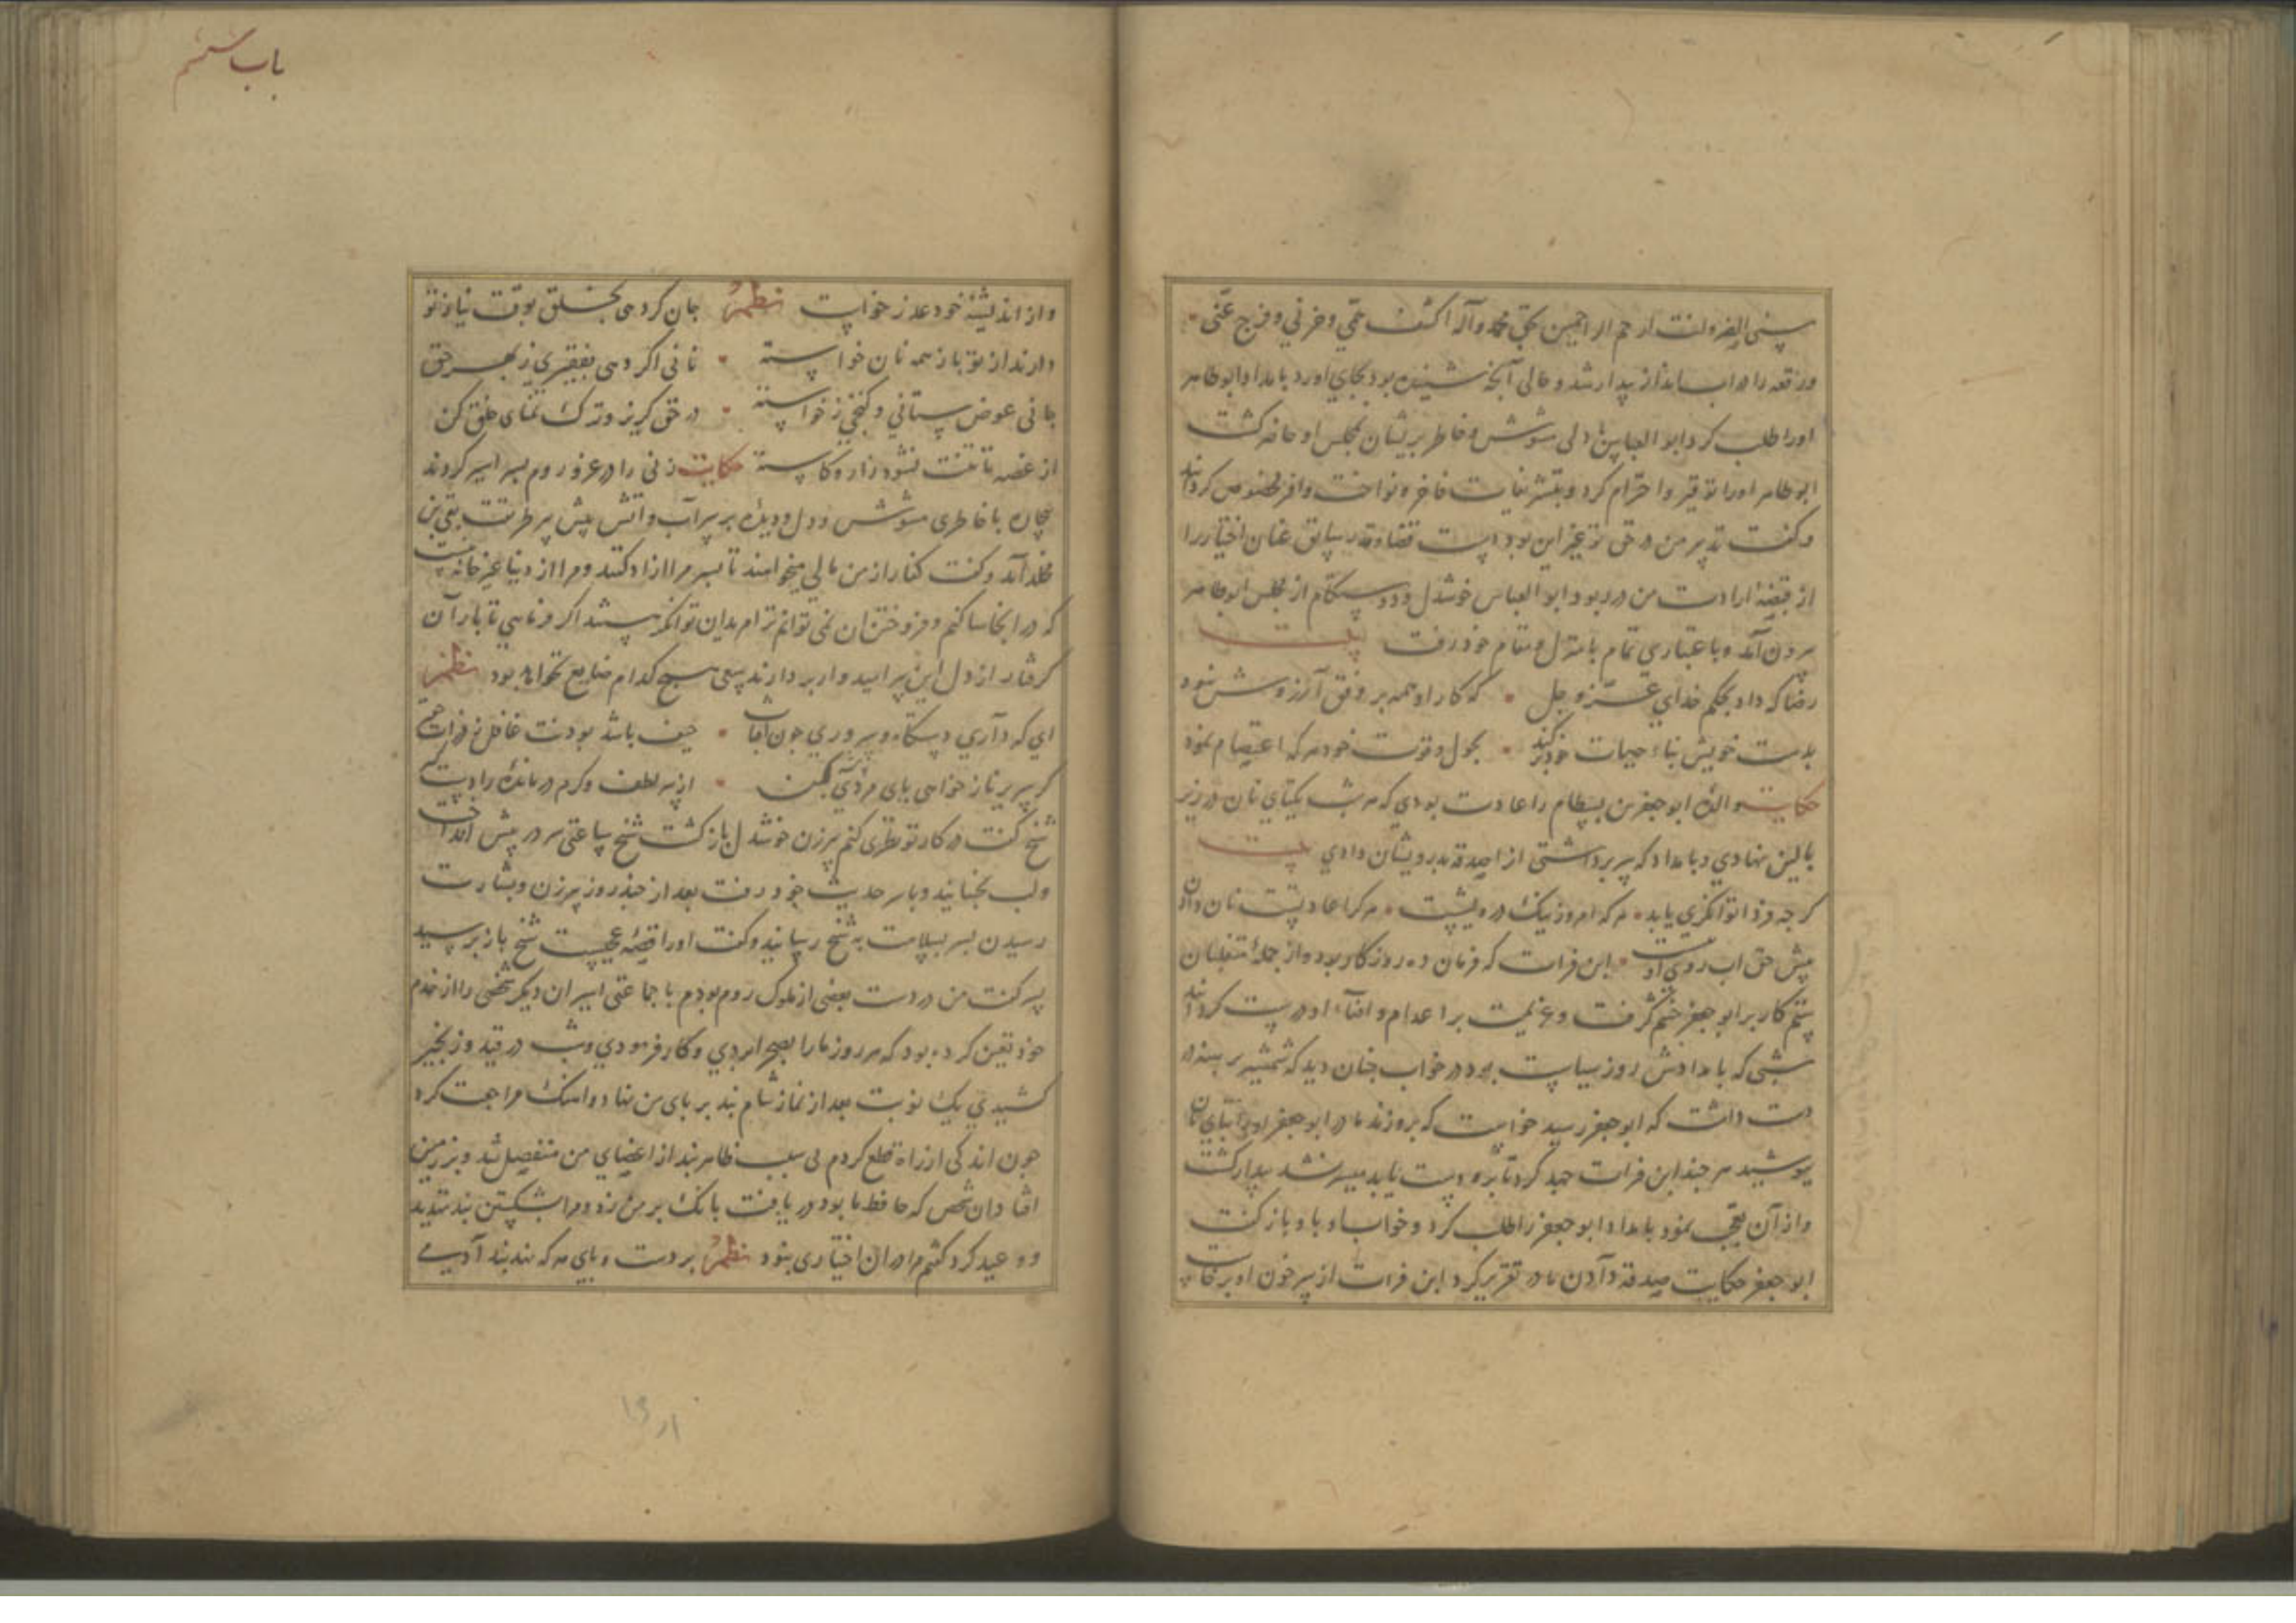 مسنی الضر وانت ارحم الراحمین بحق محمد وآله اکشف همی وحزنی وفرج عنی
ورقعه را در آب انداز بیدار شد و حالی آنچه شنیده بود بجای اورد بامداد ابوطاهر
اورا طلب کرد ابو العباس با دلی مشوش وخاطر پریشان بمجلس او حاضر کشت
ابوطاهر اورا توقیر واحترام کرد و بتشریفات فاخر و نواخت وافر مخصوص کردانید
وکفت تدبیر من در حق تو غیر این بوده است قضا وقدر سابق عنان اختیار را
از قبضهٔ ارادت من در ربود ابو العباس خوشدل ودوستکام از مجلس ابوطاهر
بیرون آمد و با اعتباری تمام بامنزل و مقام خود رفت بیت
رضا که داد بحکم خدای عز و جل که کار او همه بر وفق آرزوش نبود
بدست خویش بناء حیات خود بکند بحول وقوت خود هر که اعتصام نمود
حکایت والدهٔ ابوجعفر بن بسطام را عادت بودی که هر شب یکتای نان در زیر
بالین نهادی و بامداد که سر برداشتی از صدقه بدرویشان دادی بیت
کرچه فردا توانکری یابد هر که امروز نیک درویشست هر کرا عادتست نان دادن
پیش حق آب روی او بیشست ابن فرات که فرمان ده روزکار بوده از جمله متغلبان
ستم کار بر ابو جعفر خشم کرفت و عزیمت بر اعدام و افناء او درست کردانید
شبی که بامدادش روز سیاست بود در خواب چنان دید که شمشیر برهنه در
دست داشت که ابوجعفر رسید خواست که برو زند مادر ابوجعفر اورا بتای نان
بپوشید هر چند ابن فرات جهد کرد تا برو دست یابد میسر نشد بیدار کشت
واز آن تعجب نمود بامداد ابوجعفر را طلب کرد و خواب او با او باز کفت
ابو جعفر حکایت صدقه دادن مادر تقریر کرد ابن فرات از سر خون او برخاست
باب ششم
واز اندیشهٔ خود عذر خواست نظم جان کردهی بخلق بوقت نیاز تو
دارند از تو باز همه نان خواسته نانی اکر دهی بفقیری ز بهر حق
جانی عوض ستانی و کنجی ز خواسته در حق کریز وترک تمنای خلق کن
از غصه تا تنت نشود زار و کاسته حکایت زنی را در غزو روم پسر اسیر کردند
بیچاره با خاطری مشوش ودل و دیده بر پر آب و آتش پیش پیر طریقت بقی بن
مخلد آمد وکفت کفار از من مالی میخواهند تا پسر مرا ازاد کنند ومرا از دنیا غیر خانهٔ نیست
که در انجا ساکنم وفروختن آن نمی توانم ترا هم بدان توانکر
کرفتار از دل این پیر امیدوار بردارند سعی هیچ کدام ضایع نخواهد بود نظم
ای که داری دستکاه و سروری چون آفتاب حیف باشد بودنت غافل
کر سریر ناز خواهی پای مردی از سر لطف وکرم درماندهٔ را دست کیر
شیخ کفت در کار تو نظری کنم پیرزن خوشدل باز کشت شیخ ساعتی سر در پیش انداخت
ولب بجنبانید و با سر حدیث خود رفت بعد از چند روز پیرزن وبشارت
رسیدن پسر بسلامت به شیخ رسانید وکفت اورا قصهٔ عجیبست شیخ باز پرسید
پسر کفت من در دست بعضی از ملوک روم بودم با جماعتی اسیران دیکر شخصی را از خدم
خود تعیین کرده بود که هر روز مارا بصحرا بردی و کار فرمودی و شب در قید و زنجیر
کشیدی یک نوبت بعد از نماز شام بند بر پای من نهاد و اهنک مراجعت کرد
چون اندکی از راه قطع کردم بی سبب ظاهر بند از اعضای من منفصل شد و بر زمین
افتاد ان شخص که حافظ ما بود دریافت بانک بر من زد و مرا بشکستن بند تهدید
و وعید کرد کفتم مرا در ان اختیاری نبود نظم بر دست و پای هر که نهد بند آدمی